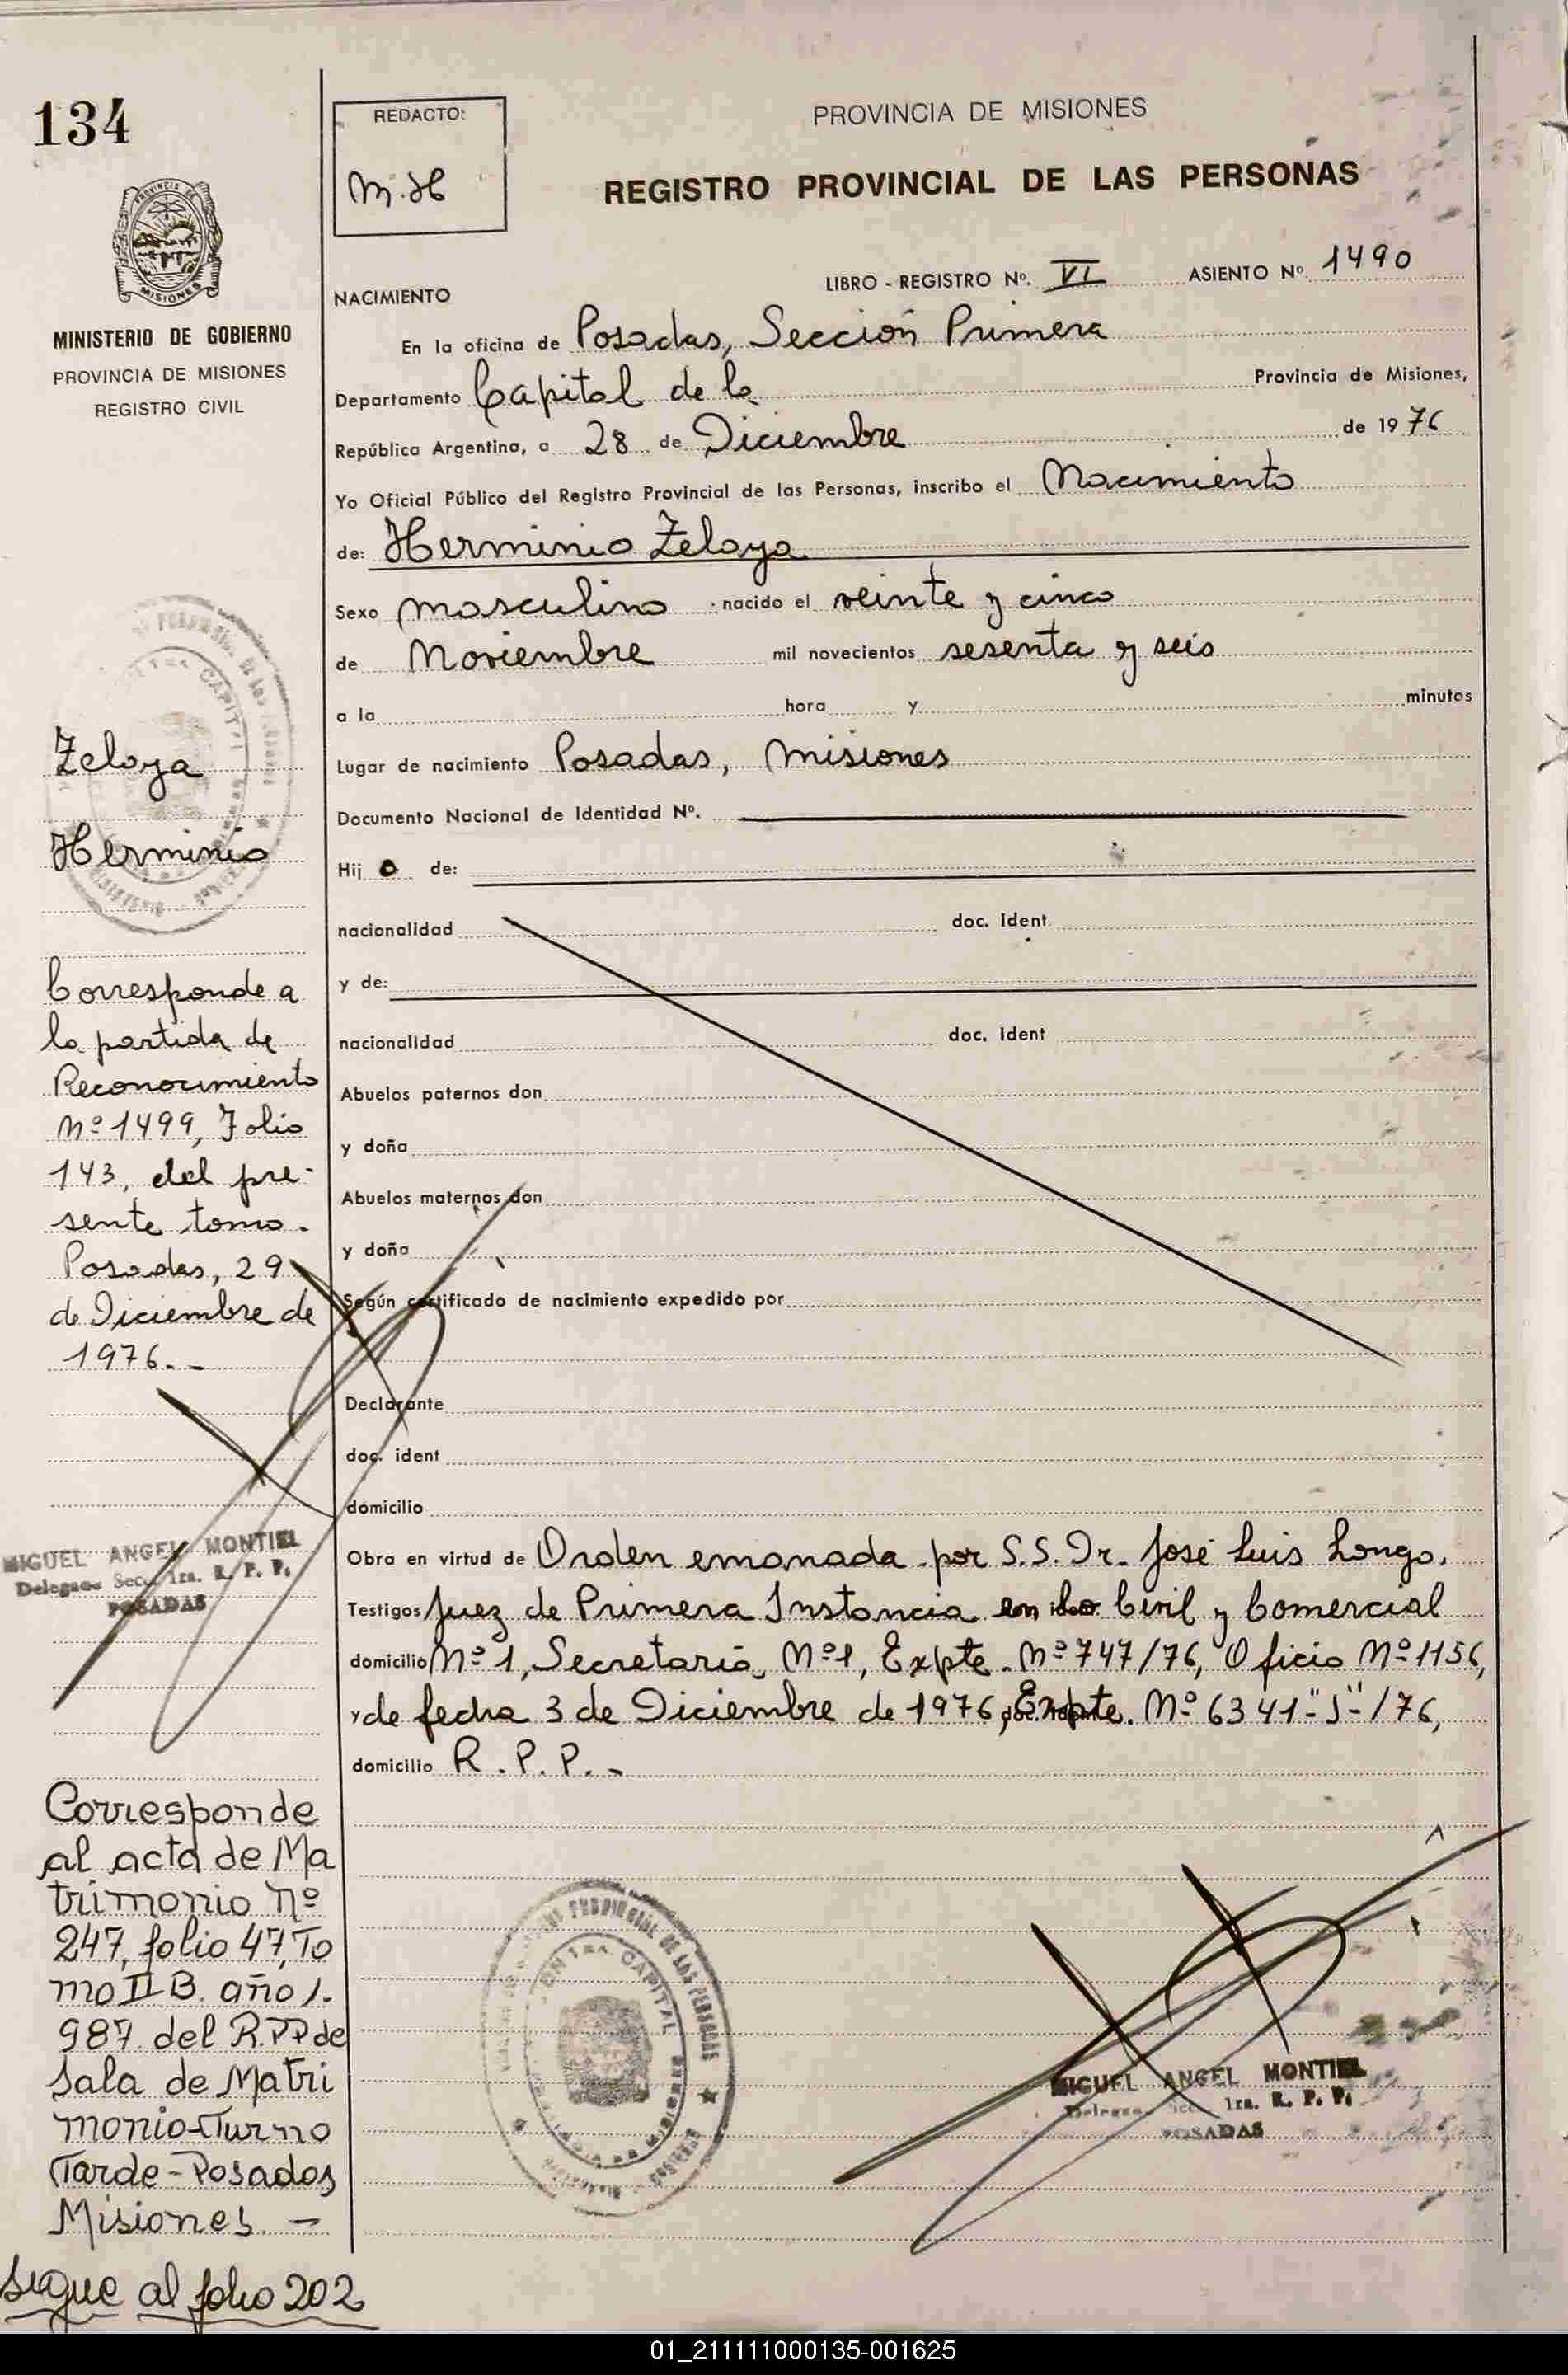 134
REDACTO:
M.H
PROVINCIA DE MISIONES
REGISTRO PROVINCIAL DE LAS PERSONAS
LIBRO - REGISTRO Nº. VI ASIENTO Nº 1490
MISIONES
MINISTERIO DE GOBIERNO
PROVINCIA DE MISIONES
REGISTRO CIVIL
NACIMIENTO
En la oficina de Posadas, Sección Primera
Departamento Capital de la Provincia de Misiones,
República Argentina, a 28 de Diciembre de 1976
Yo Oficial Público del Registro Provincial de las Personas, inscribo el Nacimiento
de: Herminio Zelaya
Sexo masculino nacido el veinte y cinco
de Noviembre mil novecientos sesenta y seis
a la hora y minutos
Lugar de nacimiento Posadas, Misiones
Documento Nacional de Identidad Nº.
Hij o de:
nacionalidad doc. ident
y de:
nacionalidad doc. ident
Abuelos paternos don
y doña
Abuelos maternos don
y doña
Según certificado de nacimiento expedido por
Declarante
doc. ident
domicilio
Obra en virtud de Orden emanada por S.S. Dr. José Luis Longo,
Testigos Juez de Primera Instancia en lo Civil y Comercial
domicilio Nº 1, Secretaría Nº 1, Expte. Nº 747/76, Oficio Nº 1156,
y de fecha 3 de Diciembre de 1976, Expte. Nº 6341-"J"-/76,
domicilio R.P.P.-
Zelaya
Herminio
Corresponde a
la partida de
Reconocimiento
Nº 1499, Folio
143, del pre-
sente tomo.
Posadas, 29
de Diciembre de
1976.-
MIGUEL ANGEL MONTIEL
Delegado Secc. 1ra. R. P. P.
POSADAS
Corresponde
al acta de Ma
trimonio Nº
247, folio 47, To
mo II B. año 1.
987 del R.PP de
Sala de Matri
monio-Turno
Tarde-Posadas
Misiones -
Sigue al folio 202
CAPITAL
MIGUEL ANGEL MONTIEL
Delegado Secc. 1ra. R. P. P.
POSADAS
01_211111000135-001625